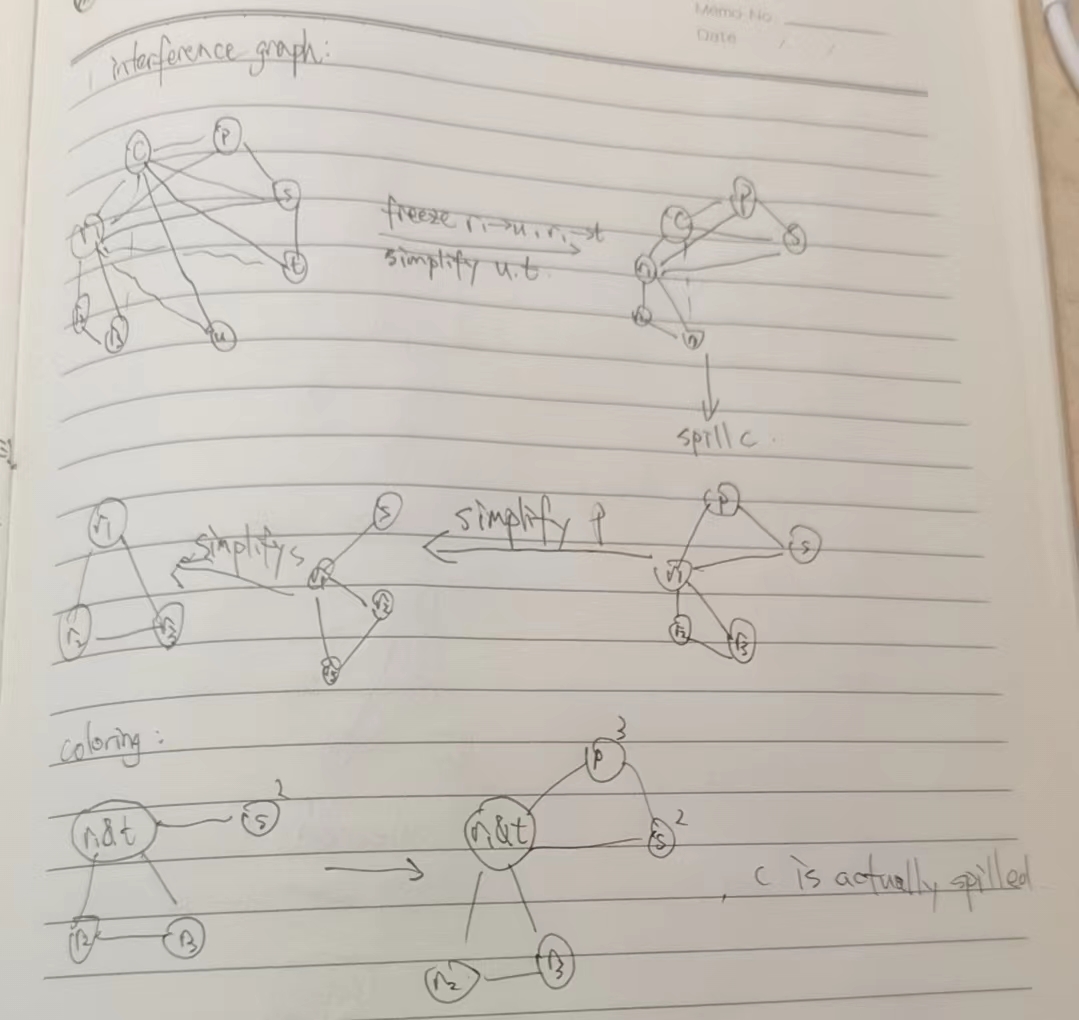 Memo No.
Date / /
interference graph:
C P
S
r1
t
r2 r3 u
freeze r1→u, r1→t
simplify u.t.
P
C S
r1
r2 r3
spill c.
r1
r2 r3
simplify s
S
r1
r3
simplify P
P
S
r1
r2 r3
coloring:
r1&t S 2
r2 r3
P 3
r1&t S 2
r2 r3
, C is actually spilled